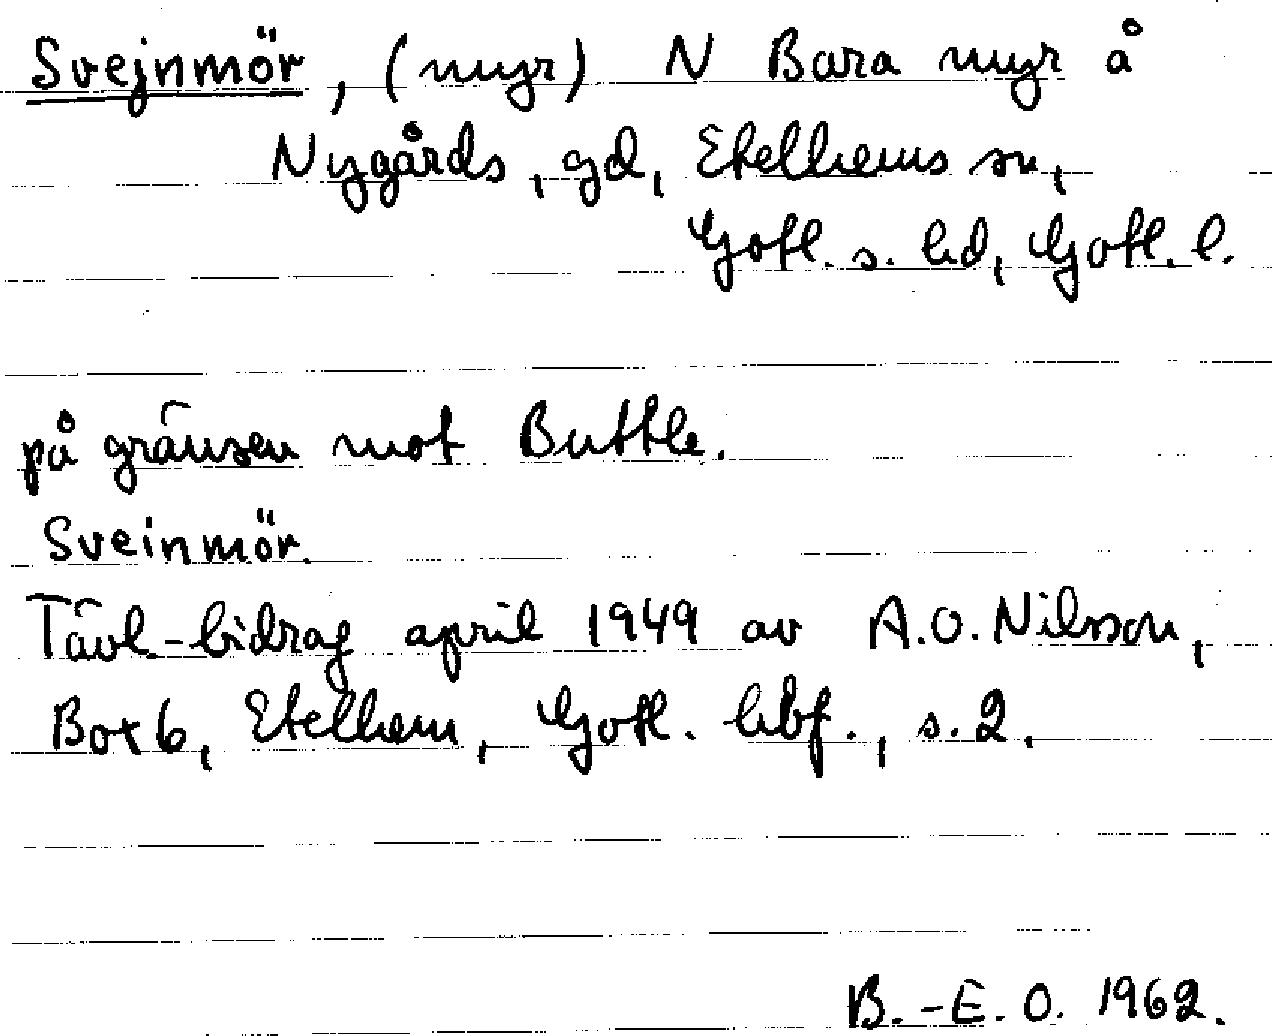 Svejnmör, (myr) N Bara myr å
Nygårds, gd, Etelhems sn,
Gotl. s. hd, Gotl. l.
på gränsen mot Buttle.
Sveinmör.
Tävl.-bidrag april 1949 av A.O. Nilsson,
Box 6, Etelhem, Gotl. hbf., s. 2.
B.-E. O. 1962.